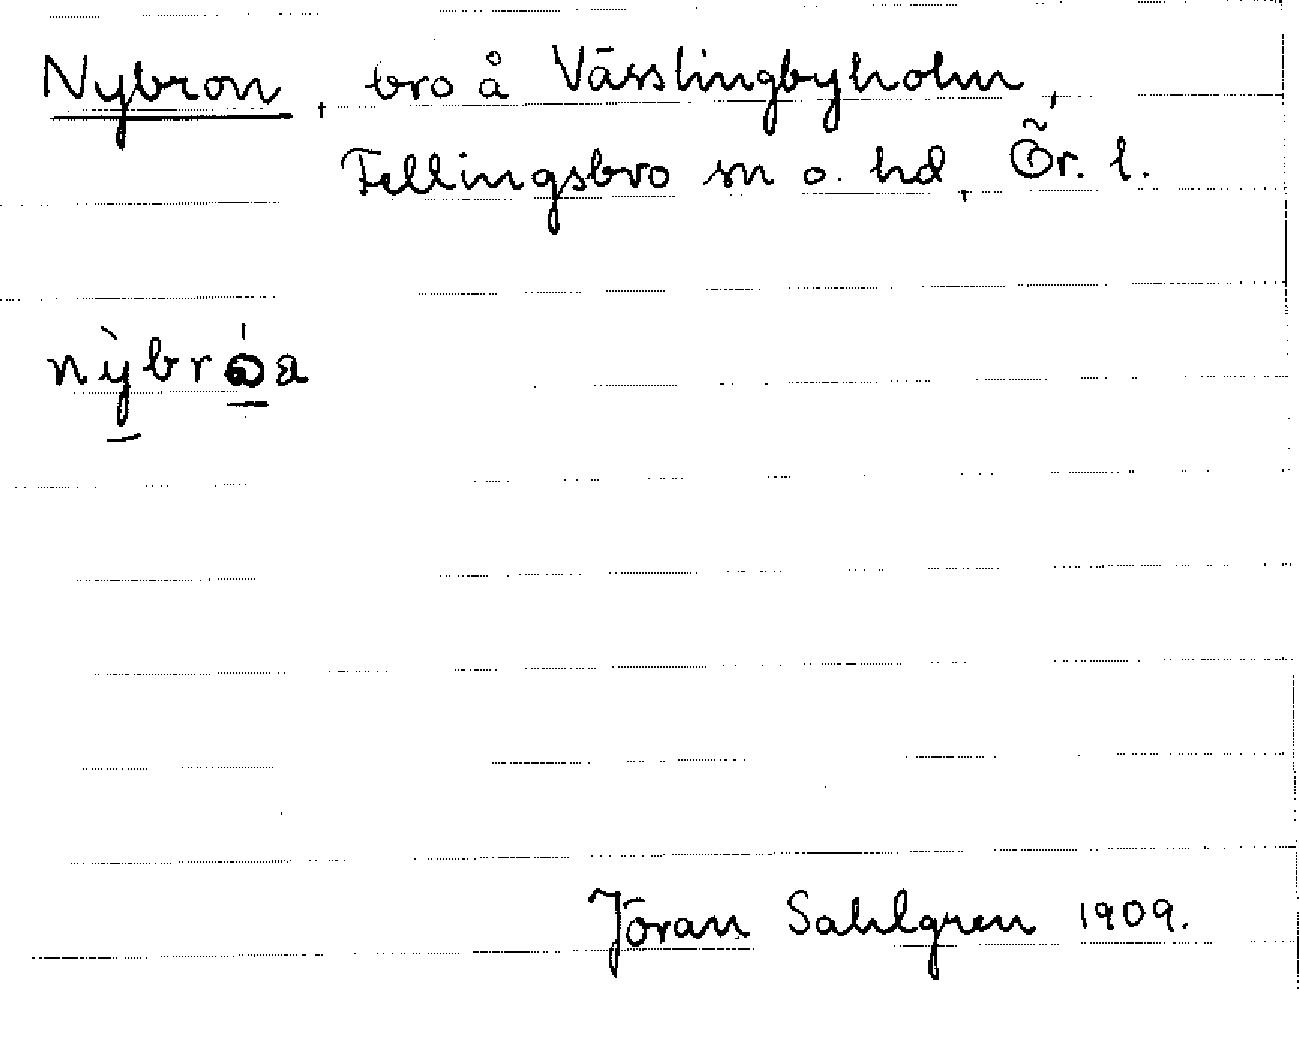 Nybron, bro å Vässlingbyholm,
Fellingsbro sn o. hd, Ör. l.
Jöran Sahlgren 1909.